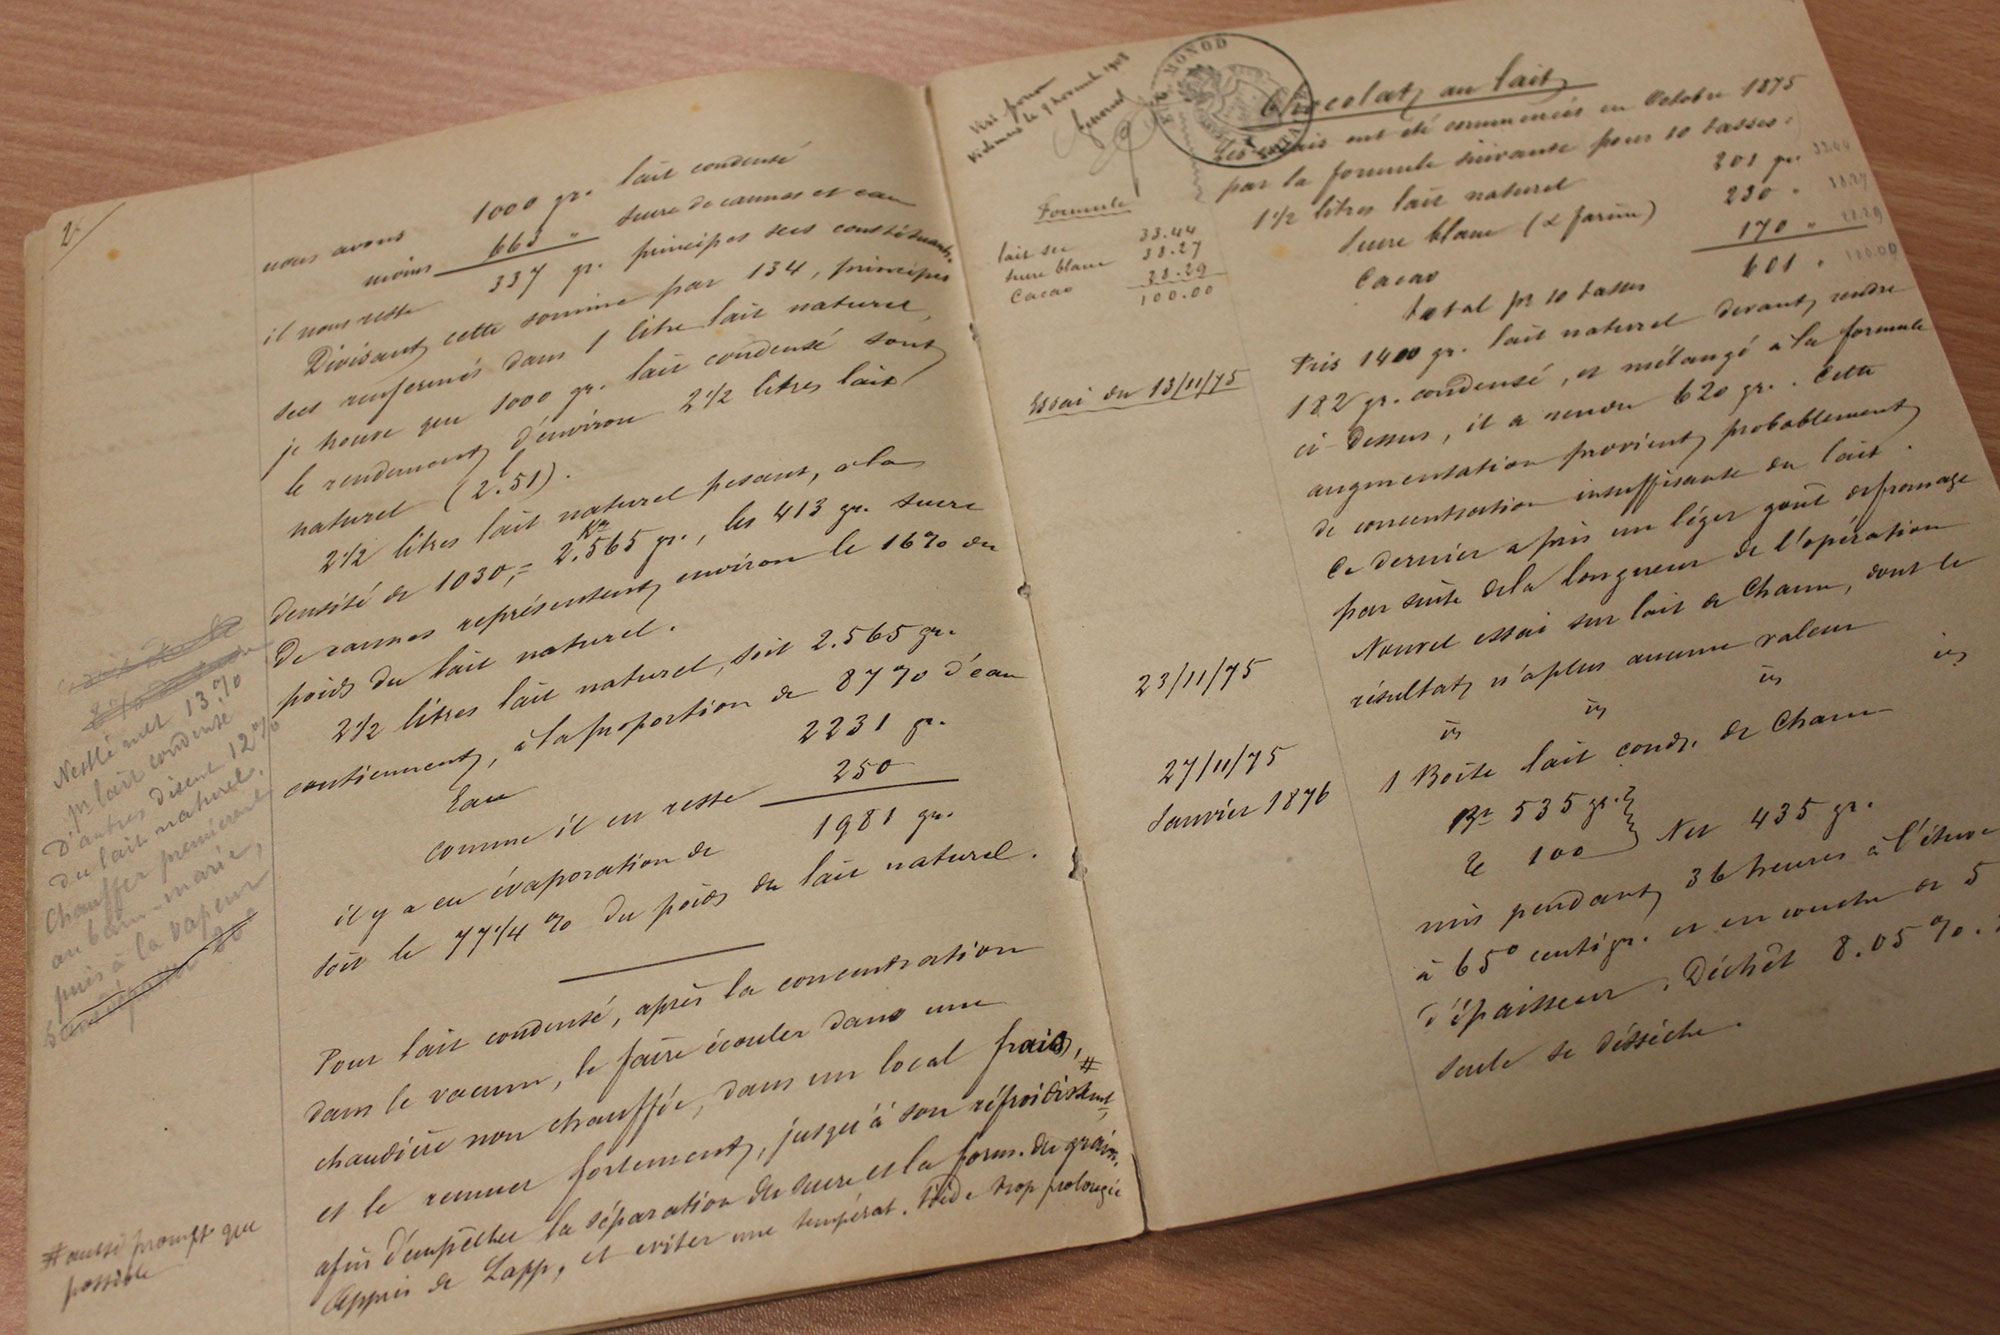 2
nous avons 1000 gr. lait condensé
moins 663 " sucre de cannes et eau
il nous reste 337 gr. principes secs constituants.
Divisant cette somme par 134, principes
secs renfermés dans 1 litre lait naturel,
je trouve que 1000 gr. lait condensé sont
le rendement d'environ 2 1/2 litres lait
naturel (2.51).
2 1/2 litres lait naturel pesant, à la
densité de 1030, = 2.565 gr., les 413 gr. sucre
de cannes représentent environ le 16% du
poids du lait naturel.
2 1/2 litres lait naturel, soit 2.565 gr.
contiennent, à la proportion de 87% d'eau
Eau 2231 gr.
comme il en reste 250
il y a eu évaporation de 1981 gr.
soit le 77 1/4 % du poids du lait naturel.
Pour lait condensé, après la concentration
dans le vacuum, le faire écouler dans une
chaudière non chauffée, dans un local frais,
et le remuer fortement, jusqu'à son refroidissement, #
afin d'empêcher la séparation du sucre et la form. du grain.
Appris de Lapp, et eviter une températ. tiède trop prolongée
Nestlé met 13%
pr lait condensé
D'autres disent 12%
du lait naturel.
Chauffer premièrement
au bain-marie,
puis à la vapeur
# aussi prompt que
possible
Chocolat au lait
Les essais ont été commencés en Octobre 1875
par la formule suivante pour 10 tasses.
1 1/2 litres lait naturel 201 gr. 33.44
Sucre blanc (& farin) 230 " 38.27
Cacao 170 " 28.29
Total pr 10 tasses 601 " 100.00
Formule
lait sec 33.44
sucre blanc 38.27
Cacao 28.29
100.00
Essai du 13/11/75
Pris 1400 gr. lait naturel devant rendre
182 gr. condensé, et mélangé à la formule
ci-dessus, il a rendu 620 gr. Cette
augmentation provient probablement
de concentration insuffisante du lait.
Ce dernier a pris un léger goût de fromage
par suite de la longueur de l'opération
23/11/75 Nouvel essai sur lait de Cham, dont le
résultat n'a plus aucune valeur
27/11/75 id id id id
Janvier 1876 1 Boîte lait cond. de Cham
Br 535 gr.
Te 100 Net 435 gr.
mis pendant 36 heures à l'étuve
à 65° centigr. et en couche de 5
d'épaisseur. Déchet 8.05%.
seule se dessèche.
MONOD